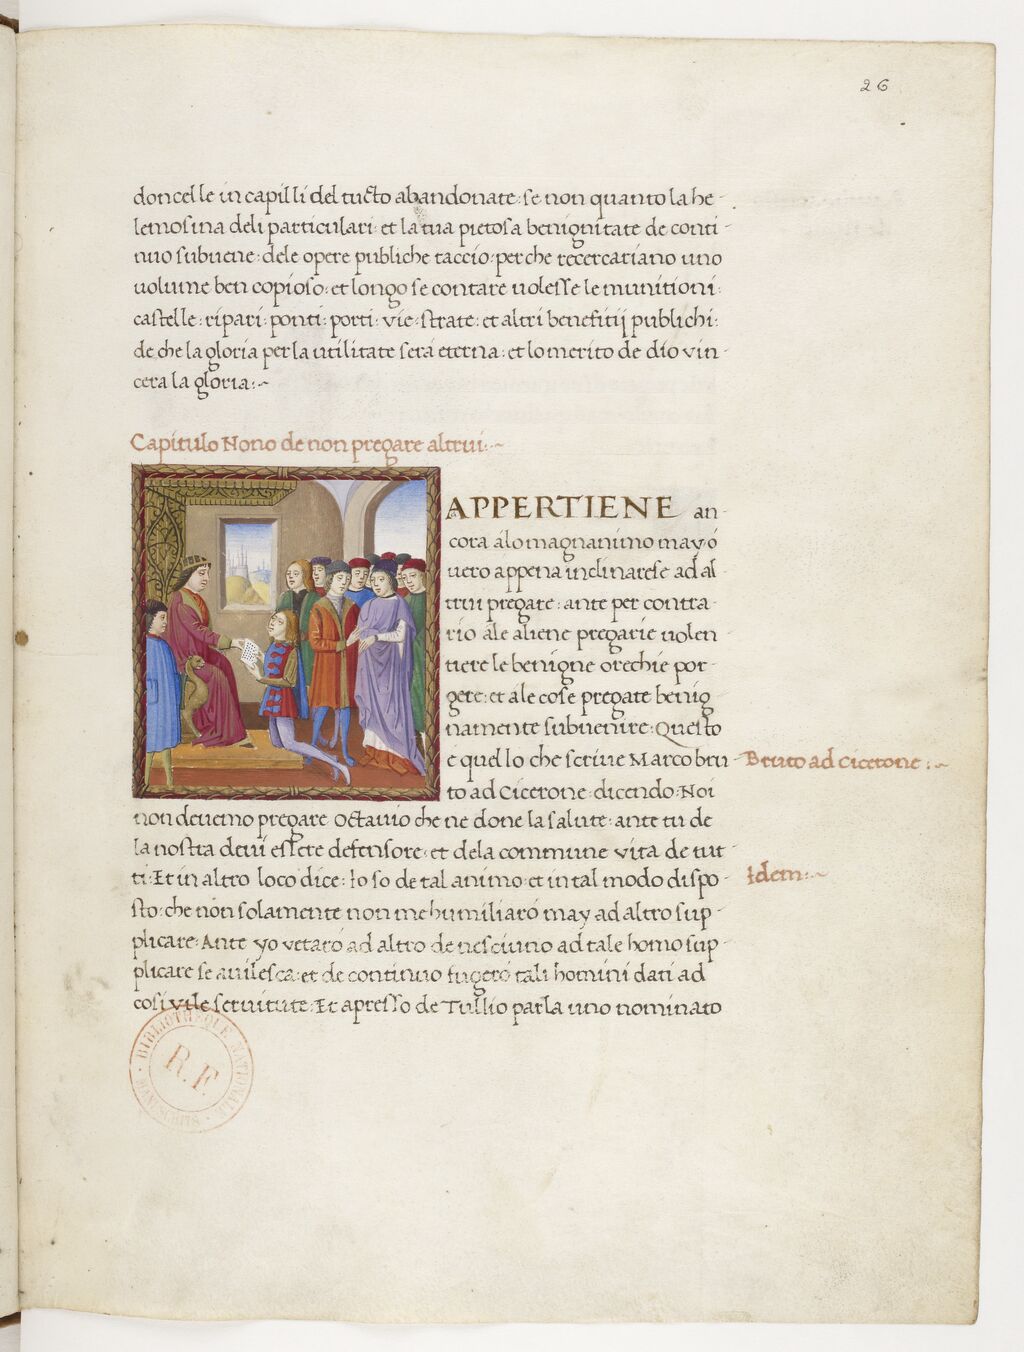 26
doncelle in capilli del tucto abandonate: se non quanto la he-
lemosina deli particulari: et la tua pietosa benignitate de conti-
nuo subuene: dele opere publiche taccio: perche recercariano uno
uolume ben copioso: et longo se contare uolesse le munitioni:
castelle: ripari: ponti: porti: vie: strate: et altri benefitij publichi:
de che la gloria per la utilitate sera eterna: et lo merito de dio vin-
cera la gloria:~
Capitulo Nono de non pregare altrui:~
APPERTIENE an-
cora álo magnanimo may ó
uero appena inclinarese ad al-
trui pregare: ante per contra-
rio ále aliene pregarie uolen-
tiere le benigne orechie por-
gere: et ále cose pregate benig-
namente subuenire: Questo
é quello che scriue Marco bru-
to ad Cicerone dicendo: Noi
Bruto ad cicerone:~
non deuemo pregare Octauio che ne done la salute: ante tu de
la nostra deui essere defensore: et dela commune vita de tut-
ti: Et in altro loco dice: Io so de tal animo: et in tal modo dispo-
Idem:~
sto: che nón solamente non me humiliaró may ad altro sup-
plicare: Ante yo vetaró ad altro de nesciuno ad tale homo sup-
plicare se auilesca: et de continuo fugeró tali homini dati ad
cosi vile seruitute: Et apresso de Tullio parla uno nominato
BIBLIOTHEQUE NATIONALE
R.F.
MANUSCRITS